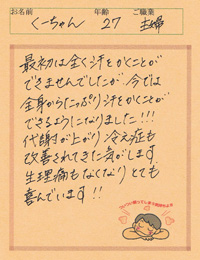 お名前 くーちゃん 年齢 27 ご職業 主婦
最初は全く汗をかくことが
できませんでしたが、今では
全身からたっぷり汗をかくことが
できるようになりました!!!
代謝が上がり冷え症も
改善されてきた気がします
生理痛もなくなりとても
喜んでいます!!